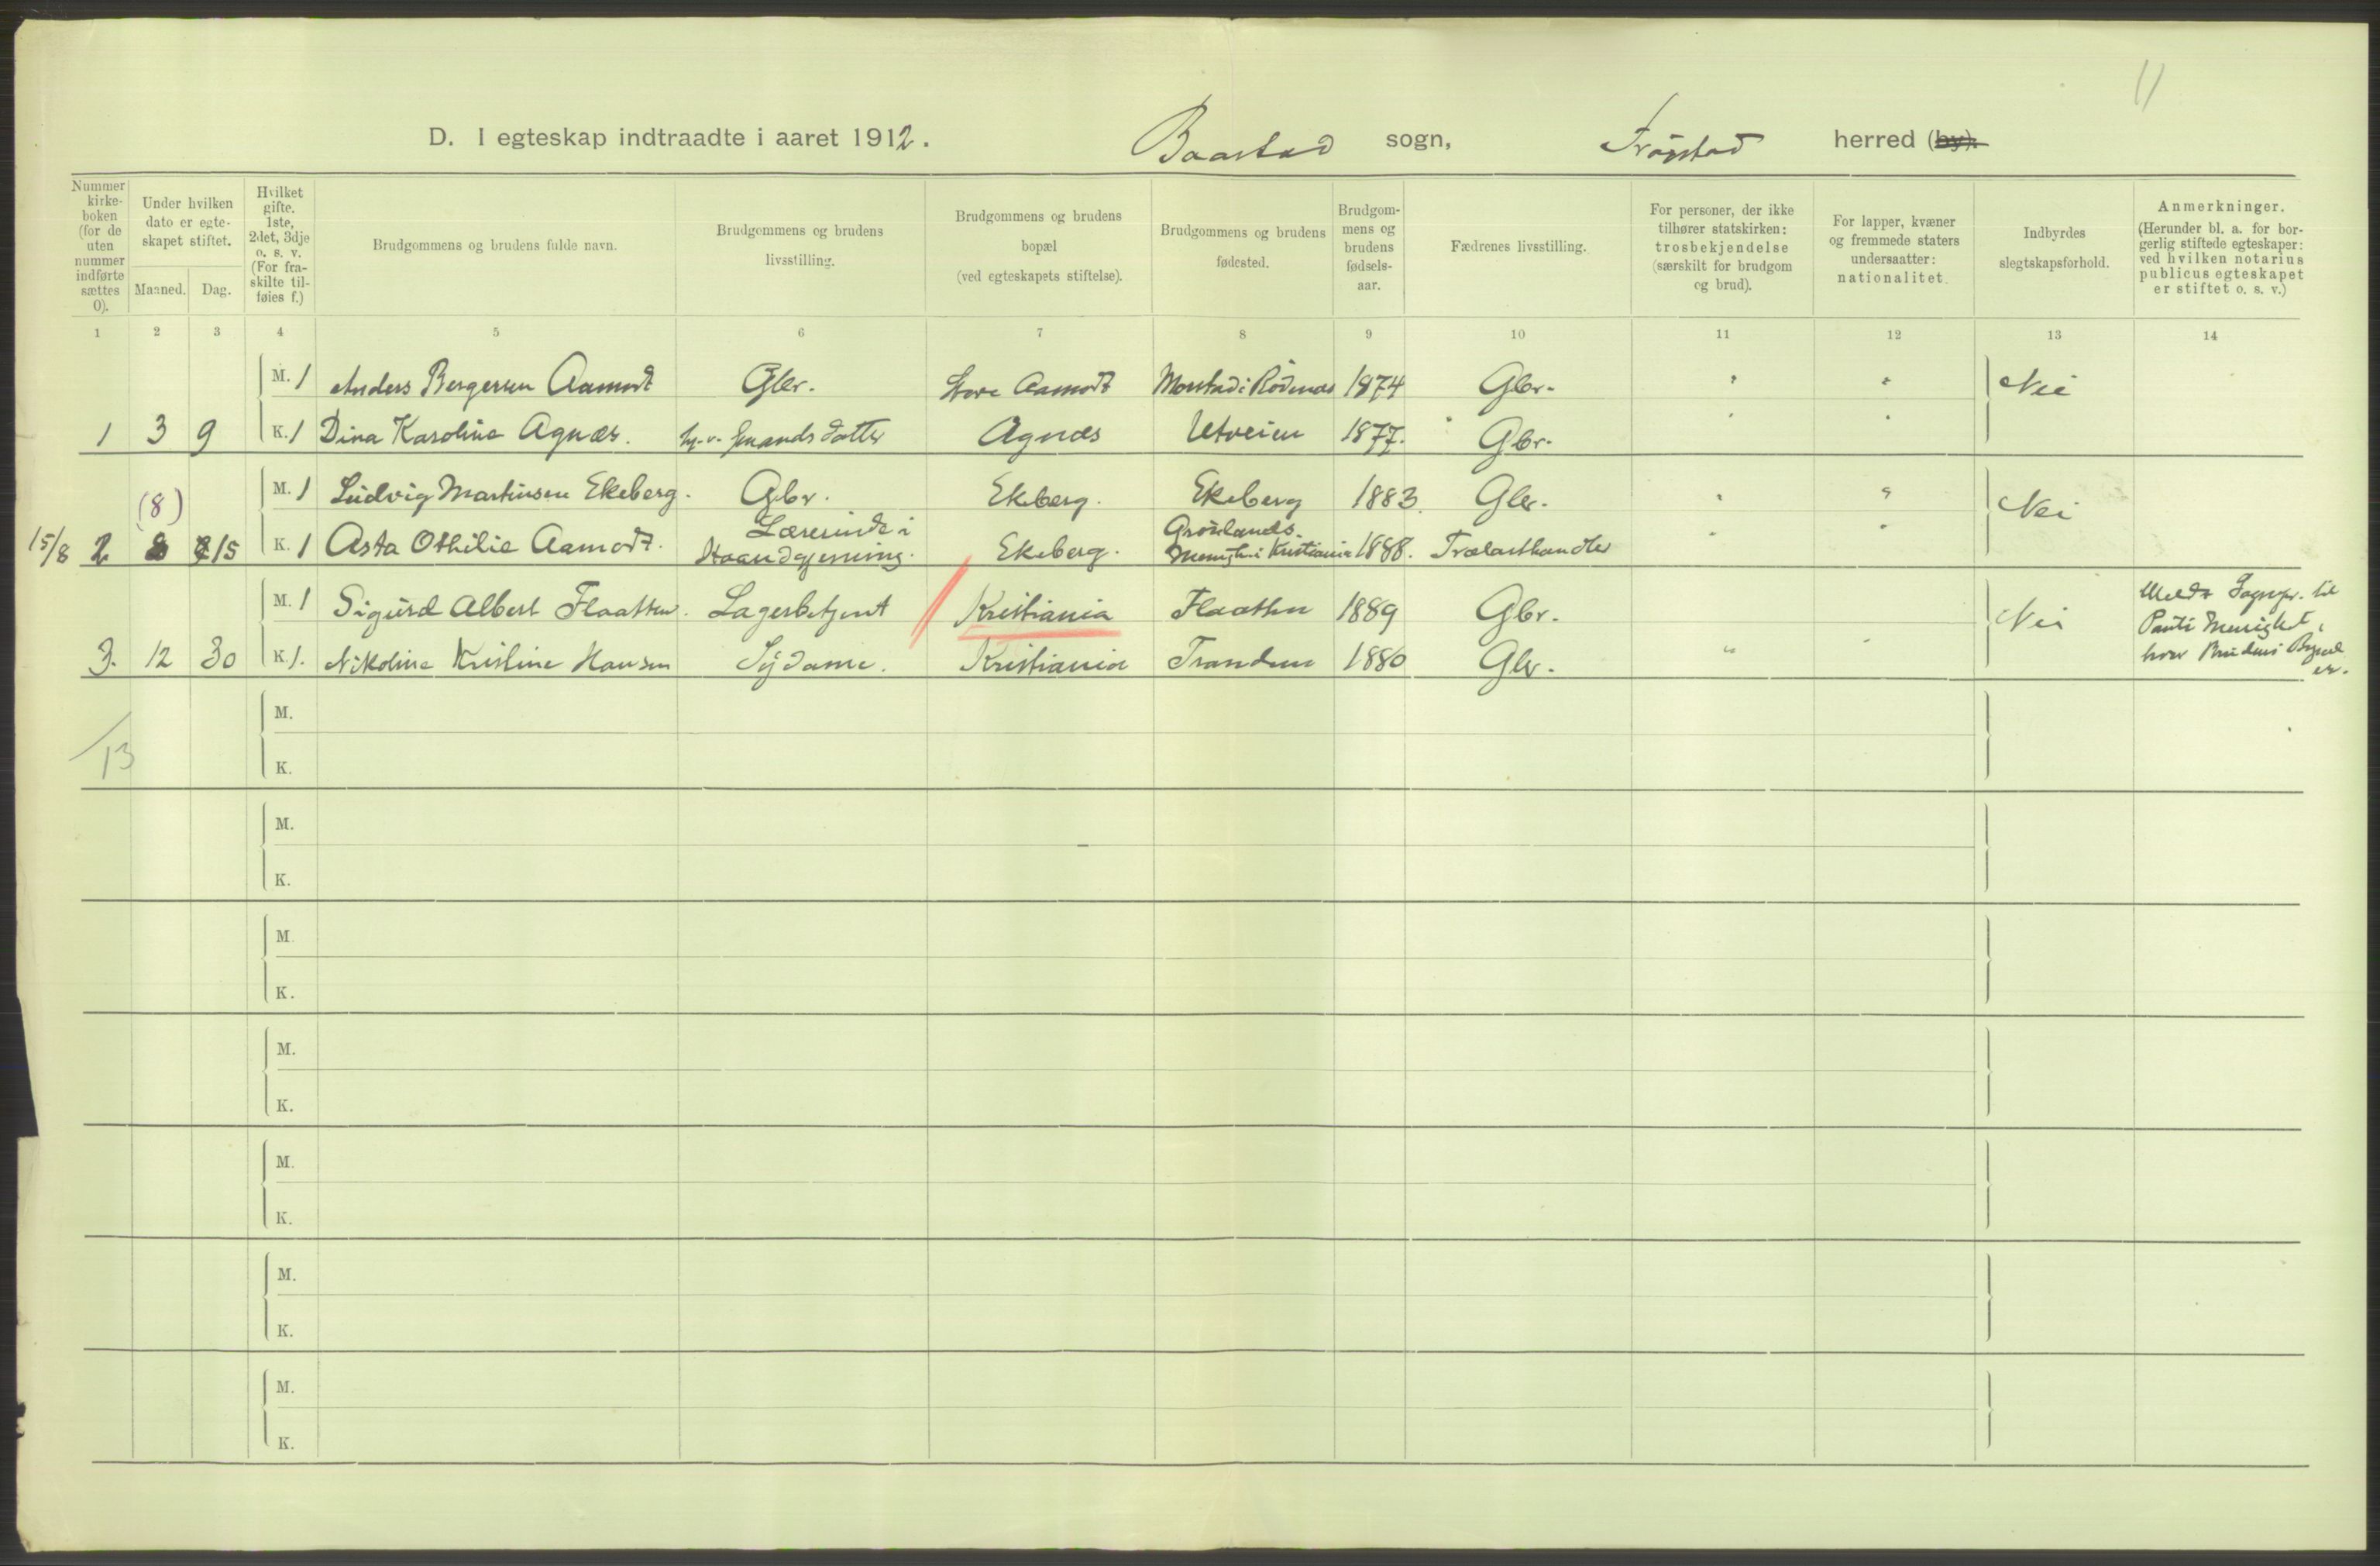 11
D. I egteskap indtraadte i aaret 1912. Baastad sogn, Trøgstad herred (by).
Nummer kirke-boken (for de uten nummer indførte sættes 0).
Under hvilken dato er egte-skapet stiftet.
Maaned. Dag.
Hvilket gifte. 1ste, 2det, 3dje o. s. v. (For fra-skilte til-føies f.)
Brudgommens og brudens fulde navn.
Brudgommens og brudens livsstilling.
Brudgommens og brudens bopæl (ved egteskapets stiftelse).
Brudgommens og brudens fødested.
Brudgom-mens og brudens fødsels-aar.
Fædrenes livsstilling.
For personer, der ikke tilhører statskirken: trosbekjendelse (særskilt for brudgom og brud).
For lapper, kvæner og fremmede staters undersaatter: nationalitet.
Indbyrdes slegtskapsforhold.
Anmerkninger. (Herunder bl. a. for bor-gerlig stiftede egteskaper: ved hvilken notarius publicus egteskapet er stiftet o. s. v.)
1 2 3 4 5 6 7 8 9 10 11 12 13 14
M. 1 Anders Bergersen Aamodt Gbr. Store Aamodt Morstad i Rødenes 1874 Gbr. " " Nei
1 3 9 K. 1 Dina Karoline Agnæs. datter Agnæs Utveien 1877. Gbr. " "
(8) M. 1 Ludvig Martinsen Ekeberg. Gbr. Ekeberg. Ekeberg 1883. Gbr. " " Nei
15/8 2 8 15 K. 1 Asta Othilie Aamodt. Lærerinde i Haandgjerning. Ekeberg. Grønlands Menighet i Kristiania 1888. Trælasthandler " "
M. 1 Sigurd Albert Flaatten. Lagerbetjent Kristiania Flaatten 1889 Gbr. Nei
3. 12 30 K. 1. Nikoline Kristine Hansen Sydame. Kristiania Trandem 1880 Gbr. " "
Meldt Sognepr. til
Pauli Menighet,
hvor Brudens Bopæl
er.
/13
M.
K.
M.
K.
M.
K.
M.
K.
M.
K.
M.
K.
M.
K.